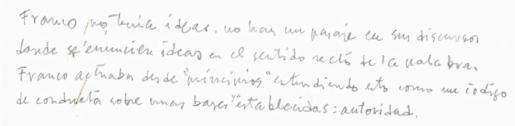 Franco no tenía ideas, no hay un pasaje en sus discursos
donde se enuncien ideas en el sentido recto de la palabra.
Franco actuaba desde "principios" entendiendo esto como un código
de conducta sobre unas bases "establecidas": autoridad.